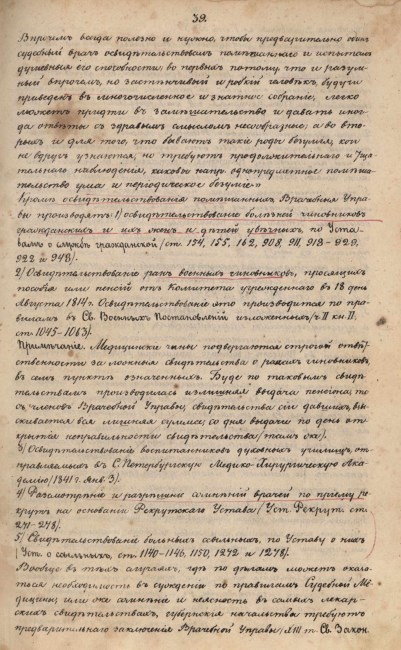 39.
Впрочемъ всегда полезно и нужно, чтобы предварительно одинъ
судебный врачъ освидѣтельствовалъ помѣшаннаго и испыталъ
душевныя его способности; во первыхъ потому, что и разум
ный впрочемъ, но застѣнчивый и робкій человѣкъ, будучи
приведенъ въ многочисленное и знатное собраніе, легко
можетъ придти въ замѣшательство и давать иног
да отвѣты съ здравымъ смысломъ несообразные; а во вто
рыхъ и для того, что бываютъ такіе роды безумія, кои
не вдругъ узнаются, но требуютъ продолжительнаго и тща
тельнаго наблюденія, каковы напр: однопредметное помѣша
тельство ума и періодическое безуміе»
Кромѣ освидѣтельствованія помѣшанныхъ Врачебныя Упра
вы производятъ: 1) освидѣтельствованіе болѣзней чиновниковъ
гражданскихъ и ихъ женъ и дѣтей увѣчныхъ, по Уста
вамъ о службѣ гражданской (ст. 154, 155, 162, 908, 911, 918-920,
922 и 948).
2) Освидѣтельствованіе ранъ военныхъ чиновниковъ, просящихъ
пособія или пенсій отъ Комитета учрежденнаго въ 18 день
Августа 1814 г. Освидѣтельствованіе это производится по пра
виламъ въ Св. Военныхъ Постановленій изложеннымъ (ч. II кн. II.
ст. 1045-1063).
Примѣчаніе. Медицинскіе чины подвергаются строгой отвѣт
ственности за ложныя свидѣтельства о ранахъ чиновниковъ,
въ семъ пунктѣ означенныхъ. Буде по таковымъ свидѣ
тельствамъ производилась излишняя выдача пенсіона, то
съ членовъ Врачебной Управы, свидѣтельства сіи давшихъ, взы
скивается вся лишняя сумма, со дня выдачи по день от
крытія неправильности свидѣтельства (тамъ же).
3) Освидѣтельствованіе воспитанниковъ духовныхъ училищъ, от
правляемыхъ въ С. Петербургскую Медико-Хирургическую Ака
демію (1841 г. Янв. 3).
4) Разсмотрѣніе и разрѣшеніе сомнѣній врачей по пріему ре
крутъ на основаніи Рекрутскаго Устава (Уст. Рекрут. ст.
271-278).
5) Свидѣтельствованіе больныхъ ссыльныхъ, по Уставу о нихъ
(Уст. о ссыльныхъ, ст. 1140-1146, 1150, 1272 и 1278).
Вообще въ тѣхъ случаяхъ, гдѣ по дѣламъ можетъ оказа
ться необходимость въ сужденіи по правиламъ Судебной Ме
дицины; или же сомнѣніе и неясность въ самыхъ лекар
скихъ свидѣтельствахъ, губернскія начальства требуютъ
предварительнаго заключенія Врачебной Управы (XIII т. Св. Закон.